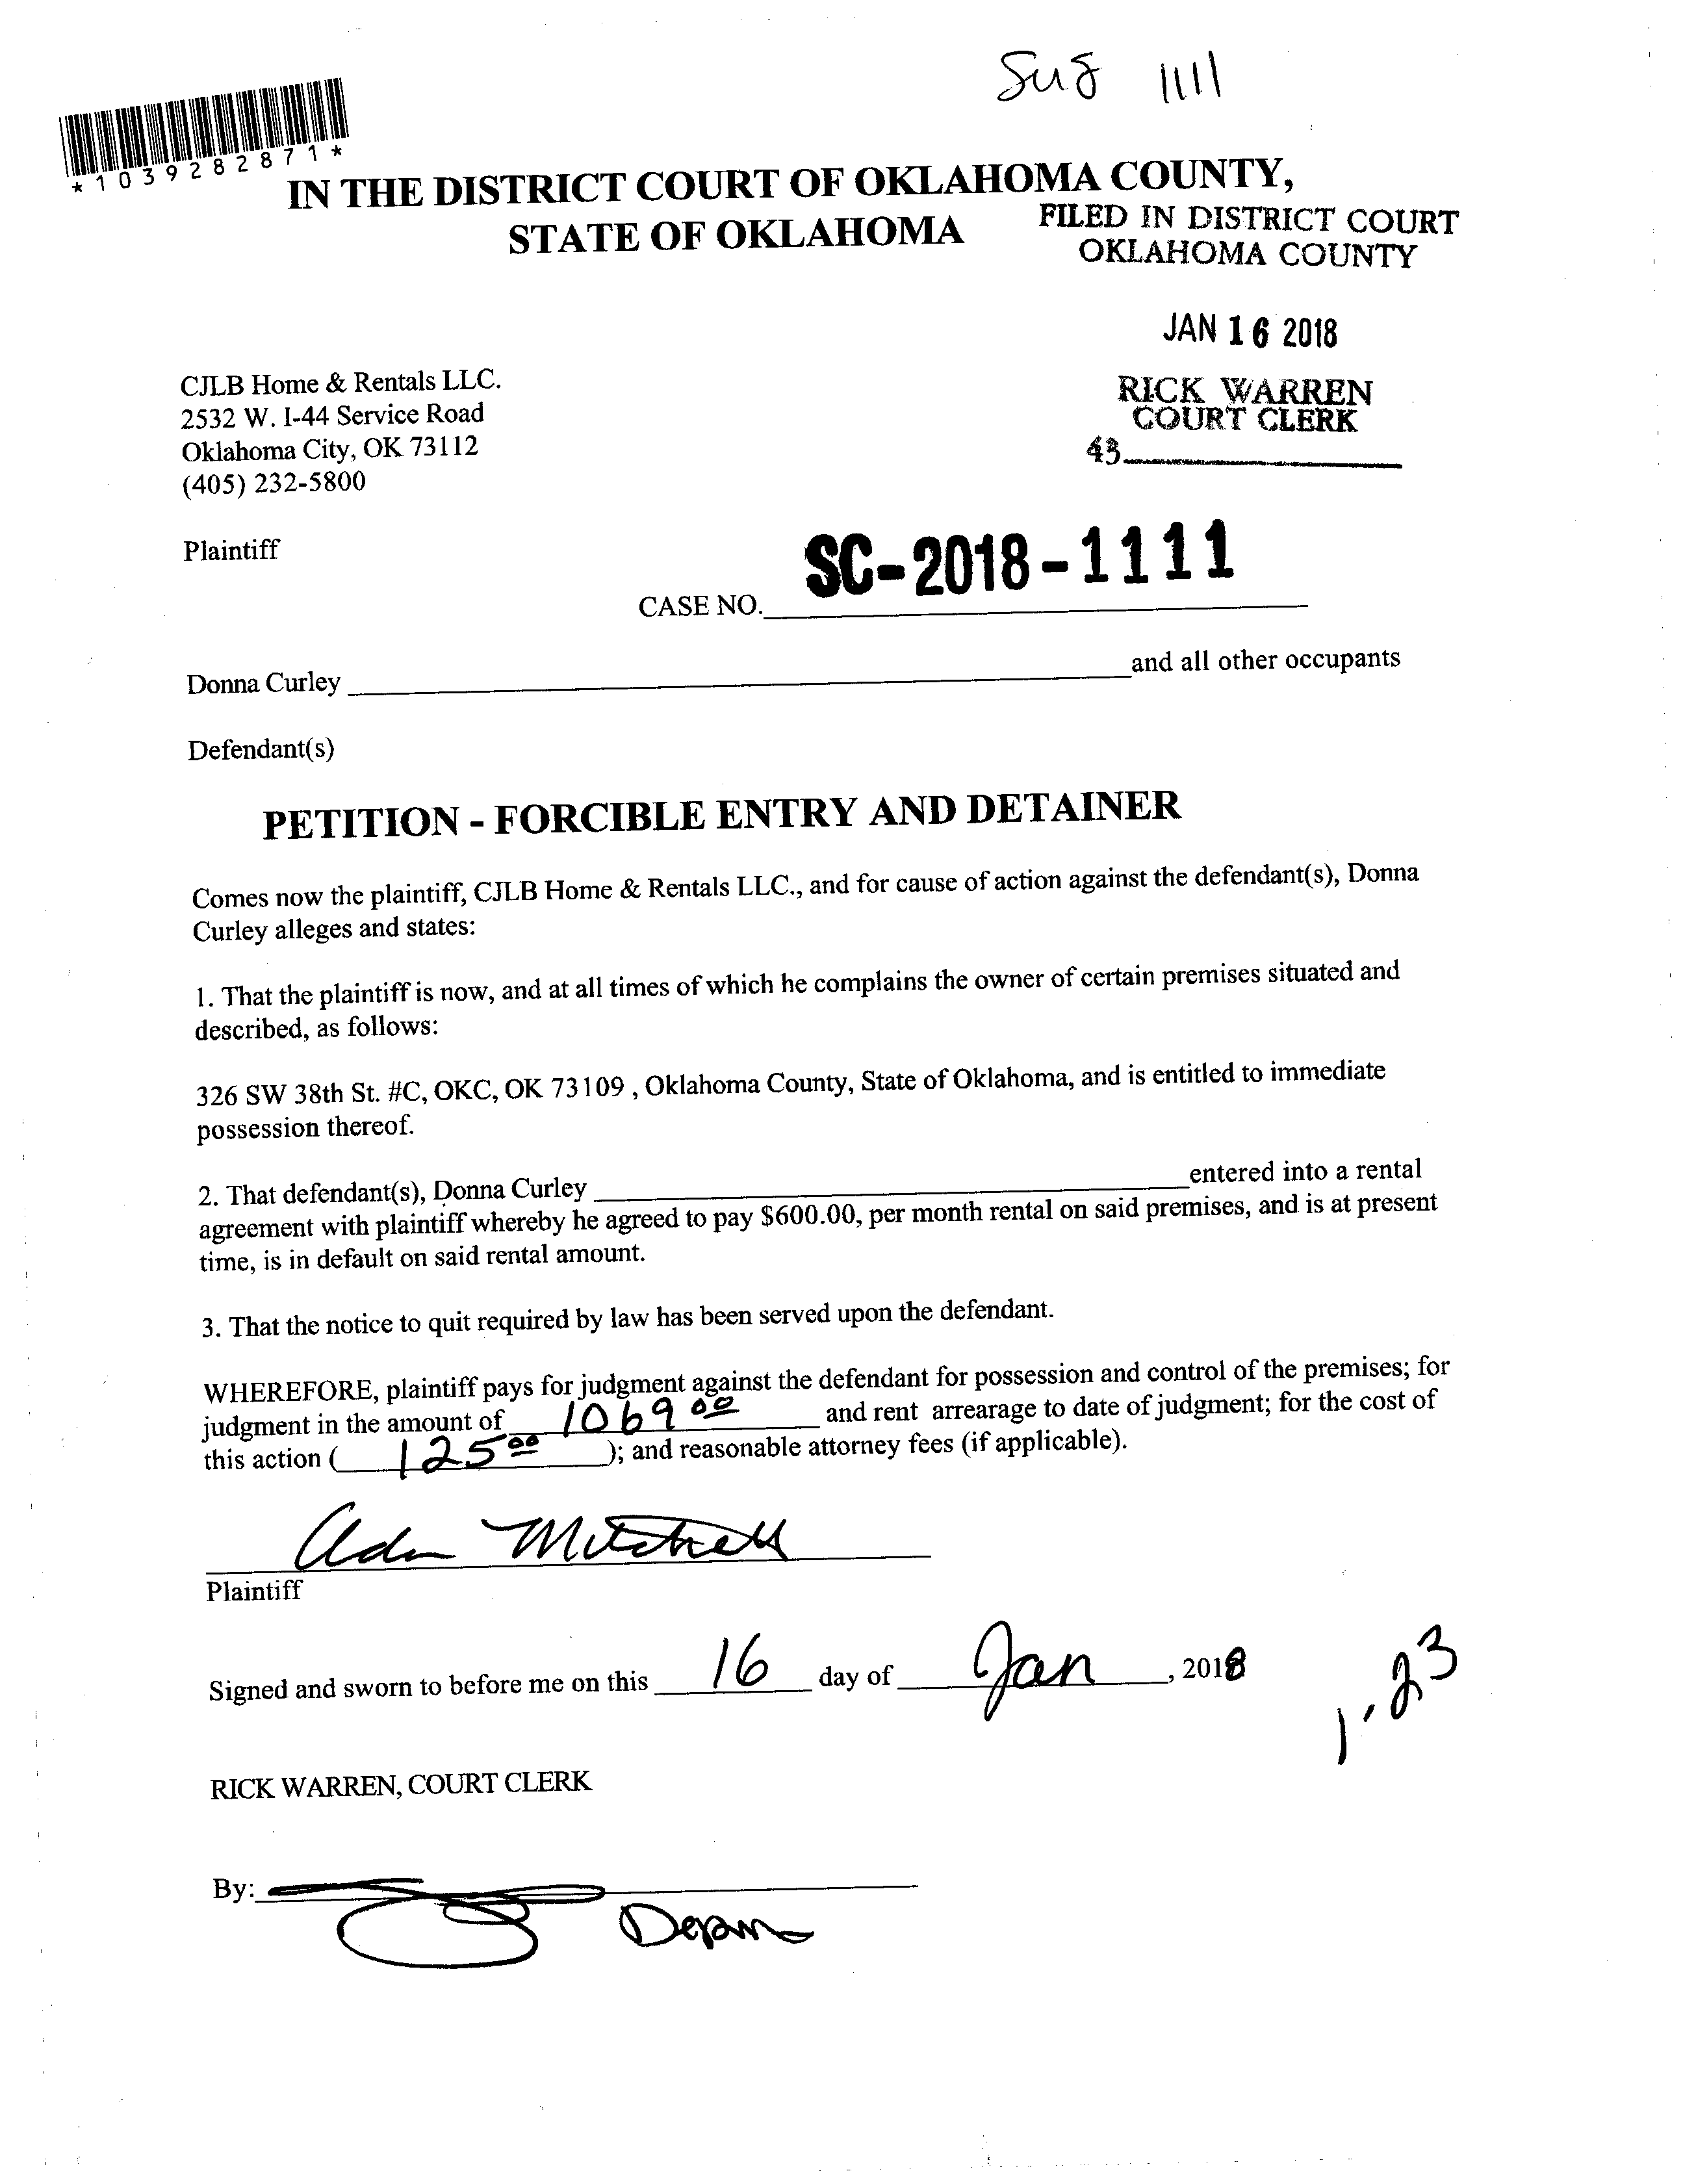 Suj 1111
*1039282871*
IN THE DISTRICT COURT OF OKLAHOMA COUNTY,
STATE OF OKLAHOMA
FILED IN DISTRICT COURT
OKLAHOMA COUNTY
JAN 16 2018
RICK WARREN
COURT CLERK
43
CJLB Home & Rentals LLC.
2532 W. I-44 Service Road
Oklahoma City, OK 73112
(405) 232-5800
Plaintiff
SC-2018-1111
CASE NO.
Donna Curley and all other occupants
Defendant(s)
PETITION - FORCIBLE ENTRY AND DETAINER
Comes now the plaintiff, CJLB Home & Rentals LLC., and for cause of action against the defendant(s), Donna
Curley alleges and states:
1. That the plaintiff is now, and at all times of which he complains the owner of certain premises situated and
described, as follows:
326 SW 38th St. #C, OKC, OK 73109 , Oklahoma County, State of Oklahoma, and is entitled to immediate
possession thereof.
2. That defendant(s), Donna Curley entered into a rental
agreement with plaintiff whereby he agreed to pay $600.00, per month rental on said premises, and is at present
time, is in default on said rental amount.
3. That the notice to quit required by law has been served upon the defendant.
WHEREFORE, plaintiff pays for judgment against the defendant for possession and control of the premises; for
judgment in the amount of 1069 00 and rent arrearage to date of judgment; for the cost of
this action ( 125 00 ); and reasonable attorney fees (if applicable).
Mitchell
Plaintiff
Signed and sworn to before me on this 16 day of Jan , 2018
1,23
RICK WARREN, COURT CLERK
By: